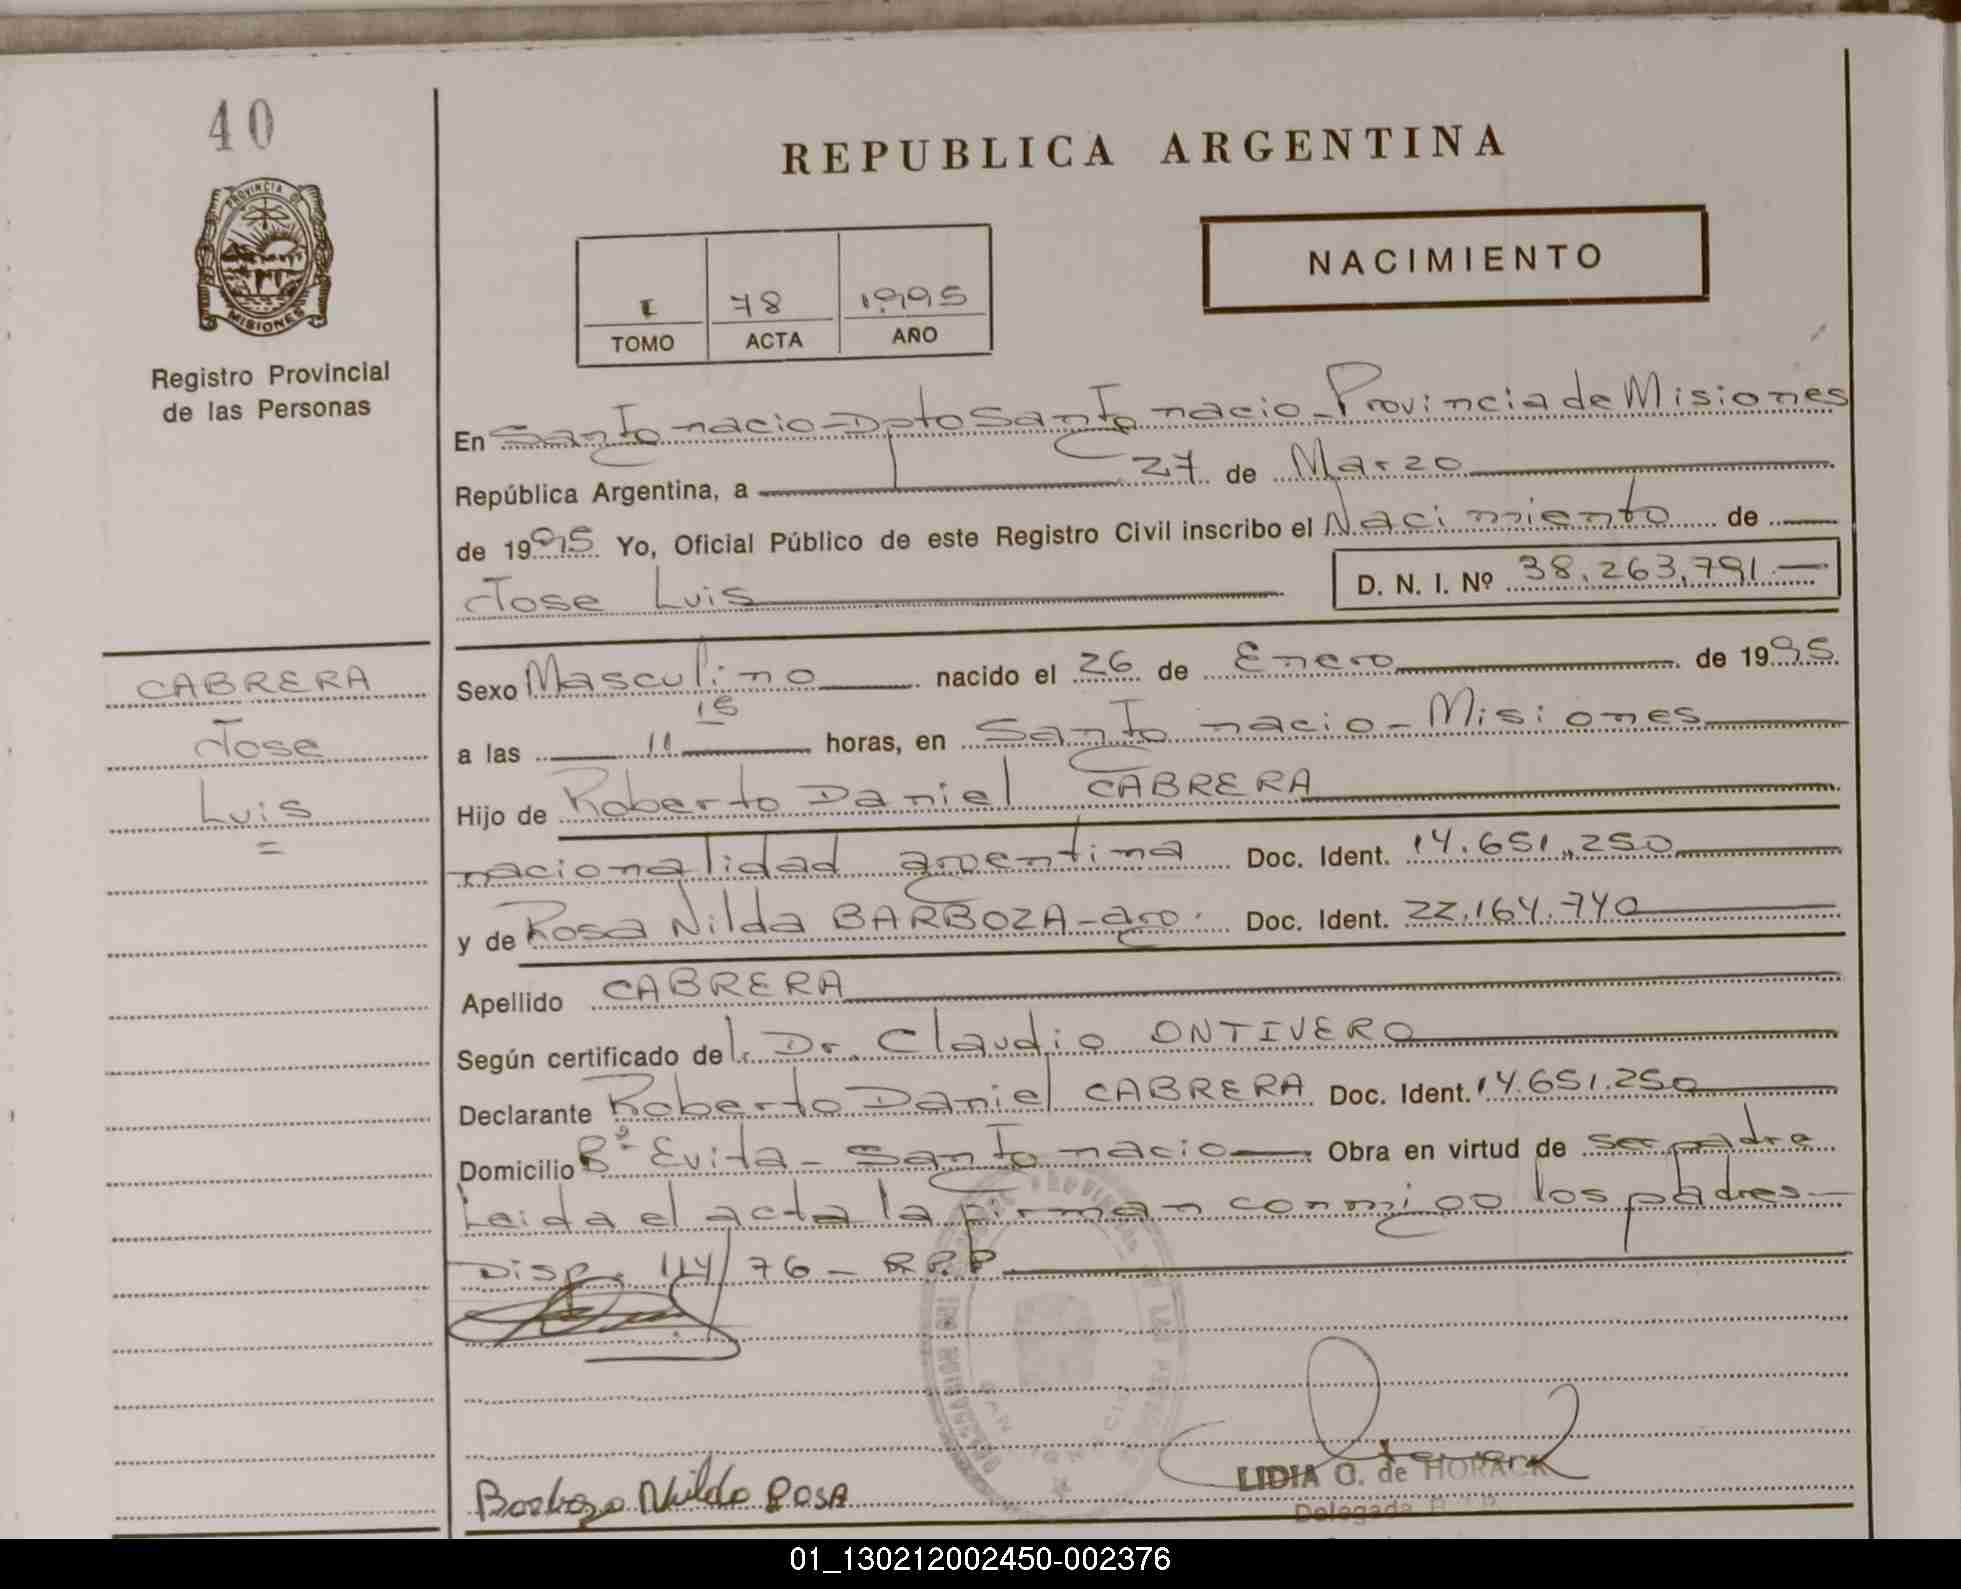 40
REPUBLICA ARGENTINA
PROVINCIA DE
MISIONES
Registro Provincial
de las Personas
I 78 1995
TOMO ACTA AÑO
NACIMIENTO
En San Ignacio - Dpto San Ignacio - Provincia de Misiones
República Argentina, a 27 de Marzo
de 1995 Yo, Oficial Público de este Registro Civil inscribo el Nacimiento de
Jose Luis D. N. I. Nº 38.263.791
CABRERA
Jose
Luis
Sexo Masculino nacido el 26 de Enero de 1995
a las 11 15 horas, en San Ignacio - Misiones
Hijo de Roberto Daniel CABRERA
nacionalidad argentina Doc. Ident. 14.651.250
y de Rosa Nilda BARBOZA - arg. Doc. Ident. 22.164.740
Apellido CABRERA
Según certificado del Dr. Claudio ONTIVERO
Declarante Roberto Daniel CABRERA Doc. Ident. 14.651.250
Domicilio Bº Evita - San Ignacio Obra en virtud de ser padre
Leida el acta la firman conmigo los padres -
Disp. 114/76 - R.P.P
Barboza Nilda ROSA
LIDIA O. de HORACK
Delegada
01_130212002450-002376